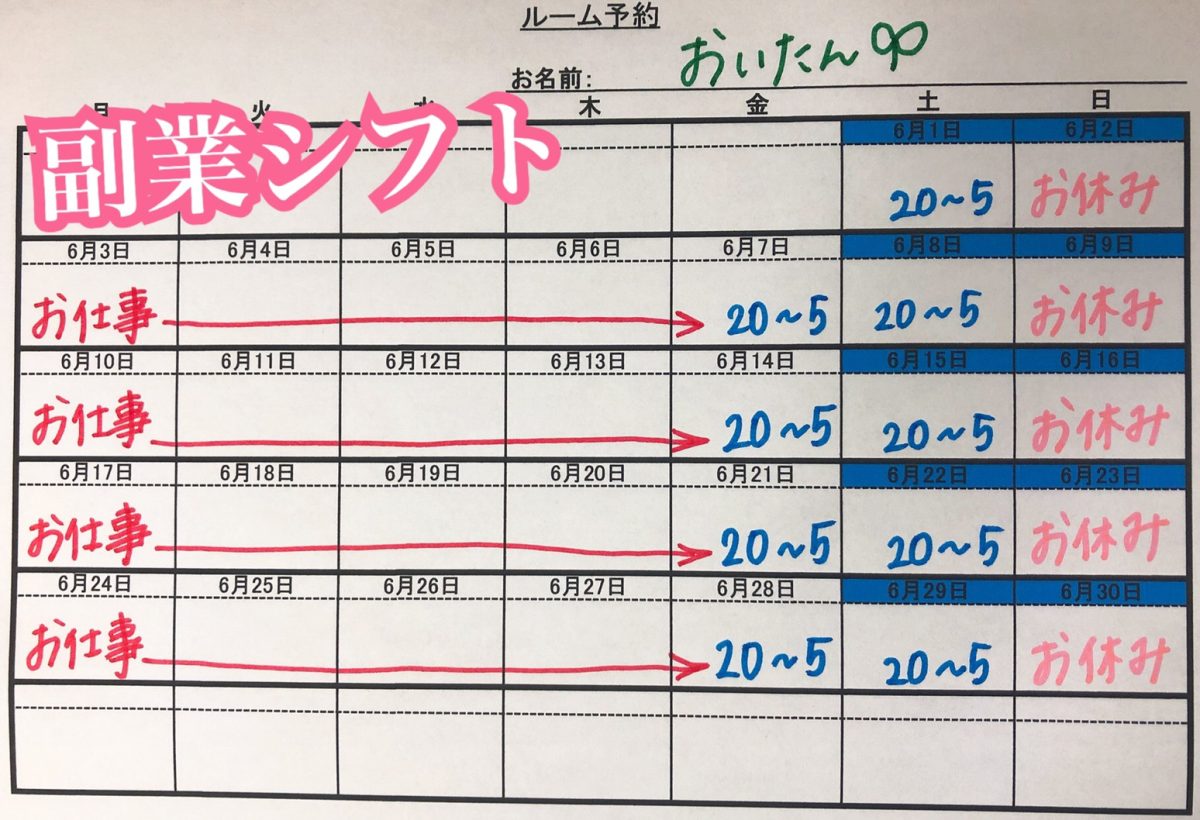 ルーム予約
お名前: おいたん
月 火 水 木 金 土 日
副業シフト
6月1日 6月2日
20~5 お休み
6月3日 6月4日 6月5日 6月6日 6月7日 6月8日 6月9日
お仕事 20~5 20~5 お休み
6月10日 6月11日 6月12日 6月13日 6月14日 6月15日 6月16日
お仕事 20~5 20~5 お休み
6月17日 6月18日 6月19日 6月20日 6月21日 6月22日 6月23日
お仕事 20~5 20~5 お休み
6月24日 6月25日 6月26日 6月27日 6月28日 6月29日 6月30日
お仕事 20~5 20~5 お休み